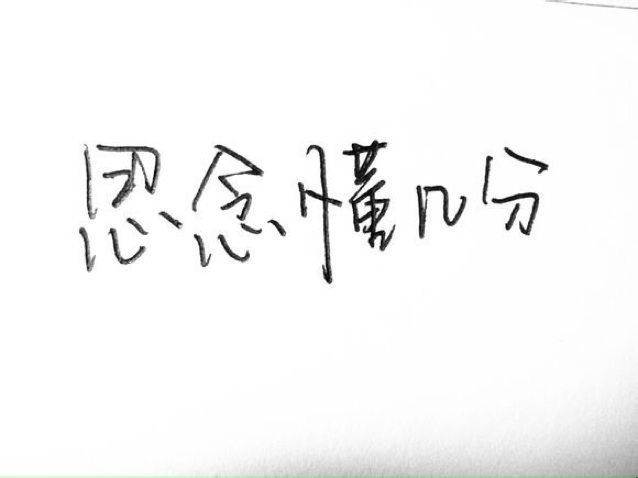 思念懂几分